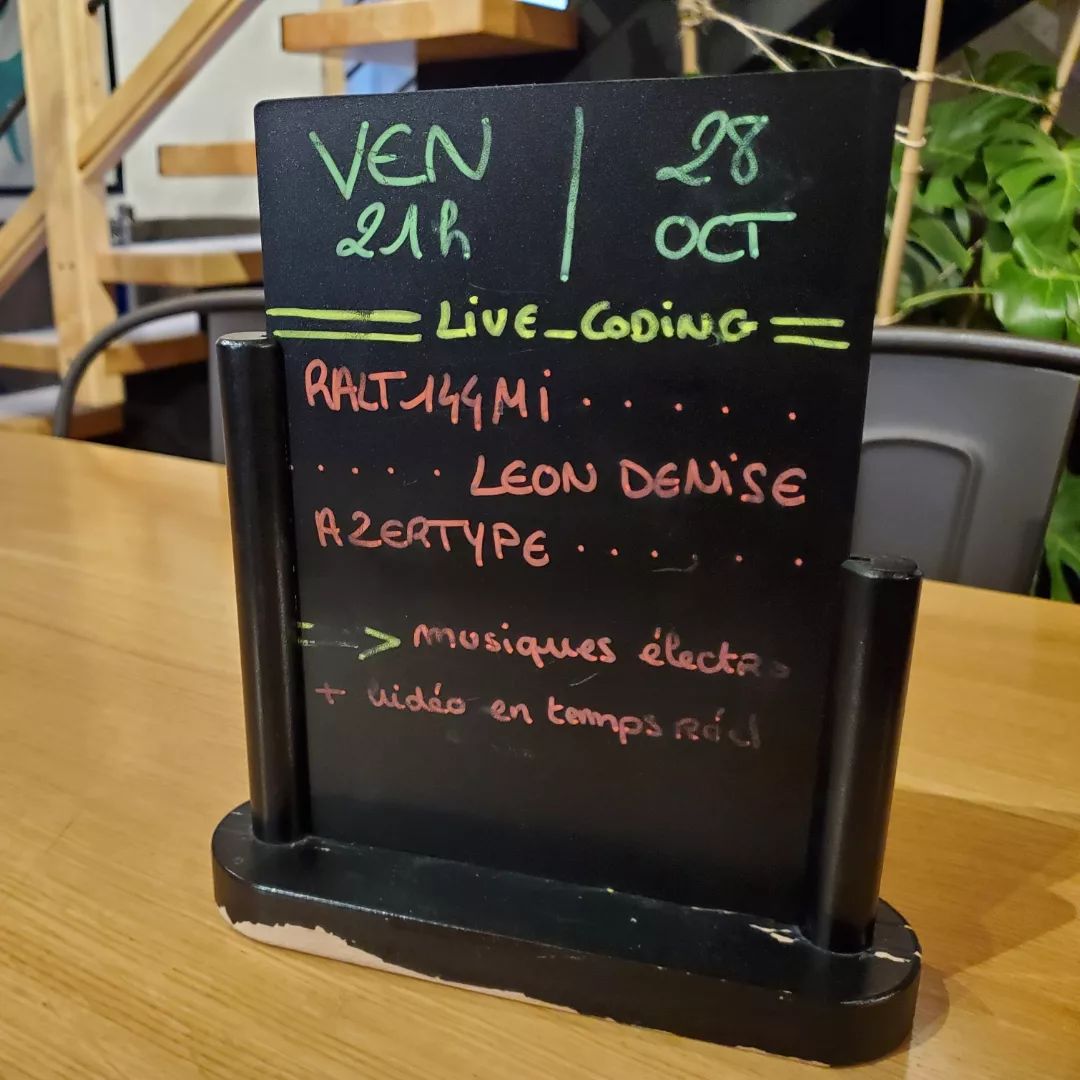 VEN | 28
21h | OCT
== LiVE_CODiNG ==
RALT144Mi . . . . .
. . . . . LEON DENiSE
AZERTYPE . . . . . .
=> musiques électro
+ vidéo en temps réel